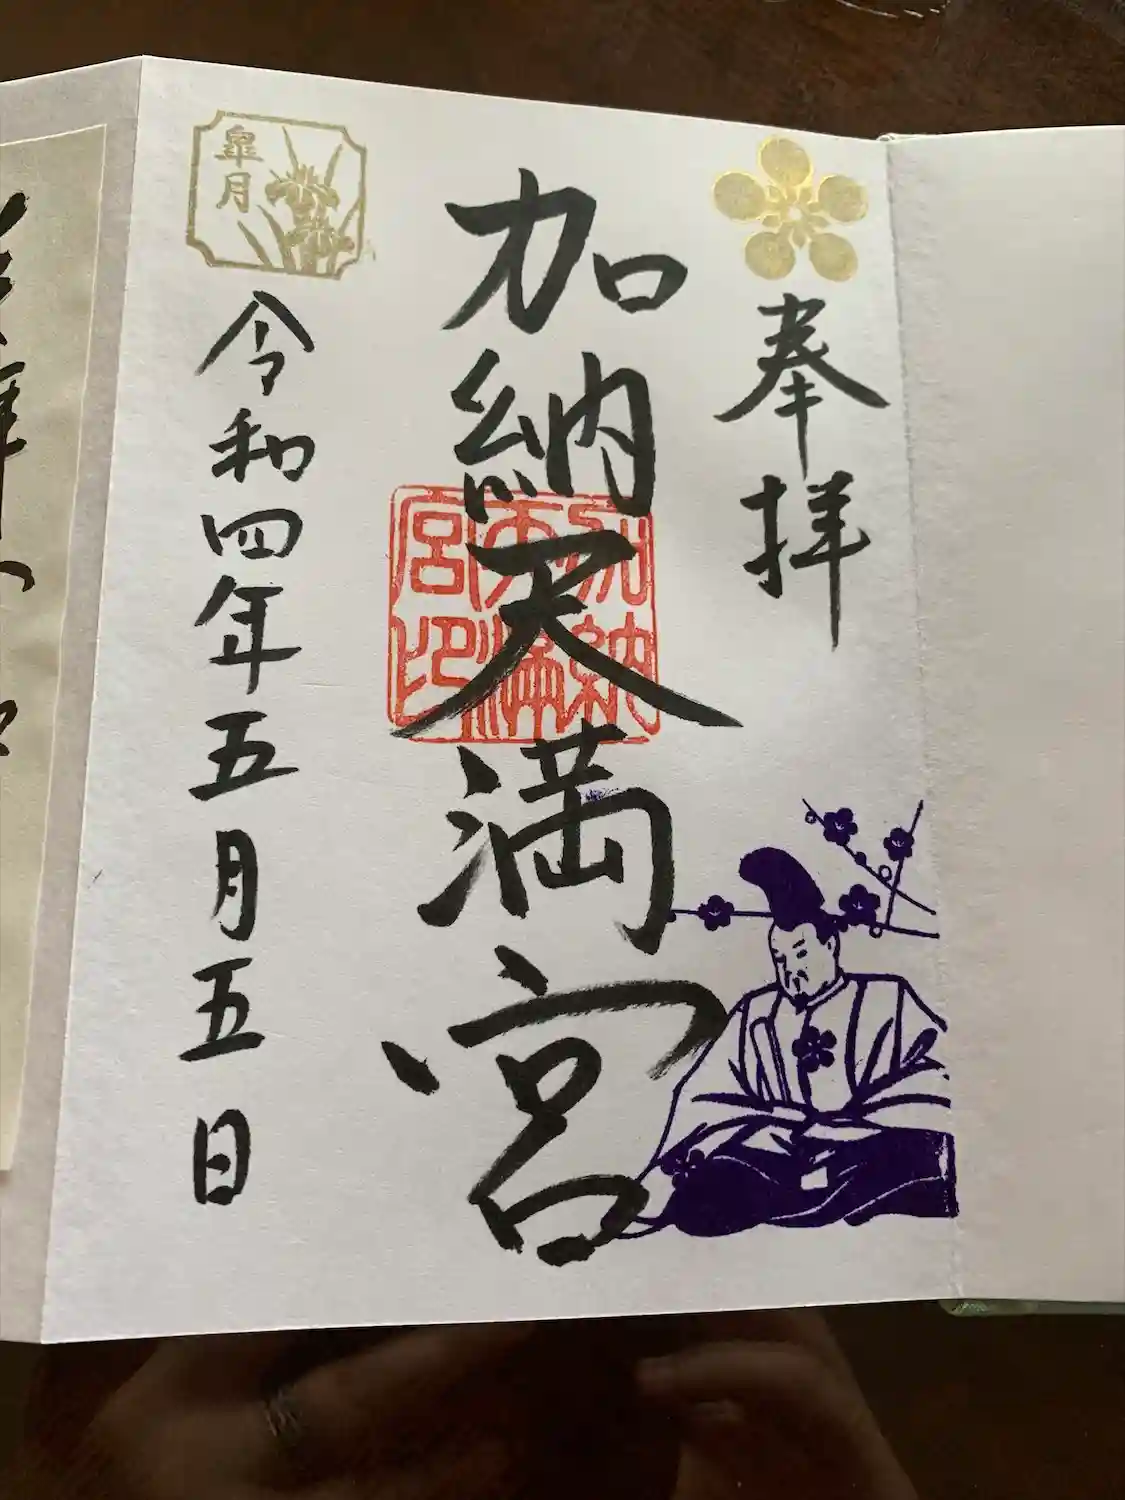 奉拝
加納天満宮
加納
天満
宮印
皐月
令和四年五月五日